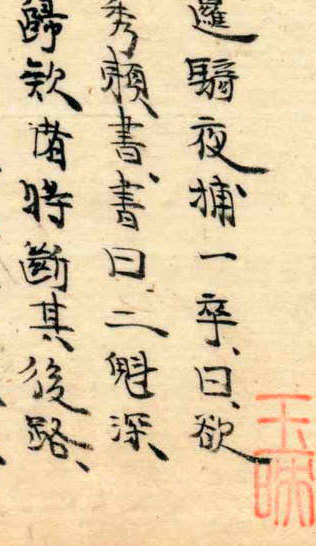 邏騎夜捕一卒、曰、欲
秀頼書、書曰、二魁深
歸欵諸将斷其後路、